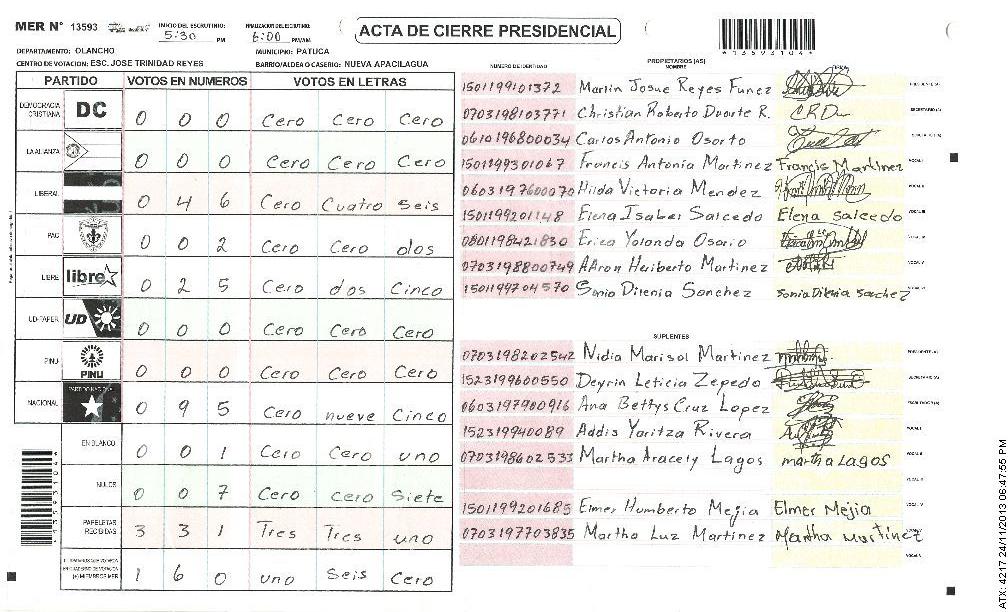 MER N° 13593 INICIO DEL ESCRUTINIO: 5:30 PM FINALIZACION DEL ESCRUTINIO: 6:00 PM/AM
ACTA DE CIERRE PRESIDENCIAL
*13593104*
DEPARTAMENTO: OLANCHO MUNICIPIO: PATUCA
CENTRO DE VOTACION: ESC. JOSE TRINIDAD REYES BARRIO/ALDEA O CASERIO: NUEVA APACILAGUA
PARTIDO VOTOS EN NUMEROS VOTOS EN LETRAS
DEMOCRACIA CRISTIANA DC 0 0 0 Cero Cero Cero
LA ALIANZA 0 0 0 Cero Cero Cero
LIBERAL 0 4 6 Cero Cuatro Seis
PAC 0 0 2 Cero Cero dos
LIBRE libre 0 2 5 Cero dos Cinco
UD-FAPER UD 0 0 0 Cero Cero Cero
PINU PINU 0 0 0 Cero Cero Cero
NACIONAL PARTIDO NACIONAL 0 9 5 Cero nueve Cinco
EN BLANCO 0 0 1 Cero Cero uno
NULOS 0 0 7 Cero Cero Siete
PAPELETAS RECIBIDAS 3 3 1 Tres Tres uno
(+) MIEMBROS MER 1 6 0 uno Seis Cero
NUMERO DE IDENTIDAD PROPIETARIOS (AS) NOMBRE
1501199101372 Marlin Josue Reyes Funez PRESIDENTE (A)
0703198103771 Christian Roberto Duarte R. CRD SECRETARIO (A)
0610196800034 Carlos Antonio Osorto
1501199301067 Francis Antonia Martinez Francis Martinez VOCAL I
0603197600070 Hilda Victoria Mendez VOCAL II
1501199201148 Elena Isabel Salcedo Elena Salcedo VOCAL III
0801198421830 Erica Yolanda Osorio VOCAL IV
0703198800749 AAron Heriberto Martinez VOCAL V
1501199704570 Sonia Dilenia Sanchez Sonia Dilenia Sanchez VOCAL VI
SUPLENTES
0703198202542 Nidia Marisol Martinez PRESIDENTE (A)
1523199600550 Deyrin Leticia Zepeda SECRETARIO (A)
0603197900916 Ana Bettys Cruz Lopez ESCRUTADOR (A)
152319940089 Addis Yaritza Rivera VOCAL I
0703198602533 Martha Aracely Lagos martha Lagos VOCAL II
VOCAL III
1501199201685 Elmer Humberto Mejia Elmer Mejia VOCAL IV
0703197703835 Martha Luz Martinez Martha Martinez VOCAL V
VOCAL VI
ATX: 4217 24/11/2013 06:47:55 PM